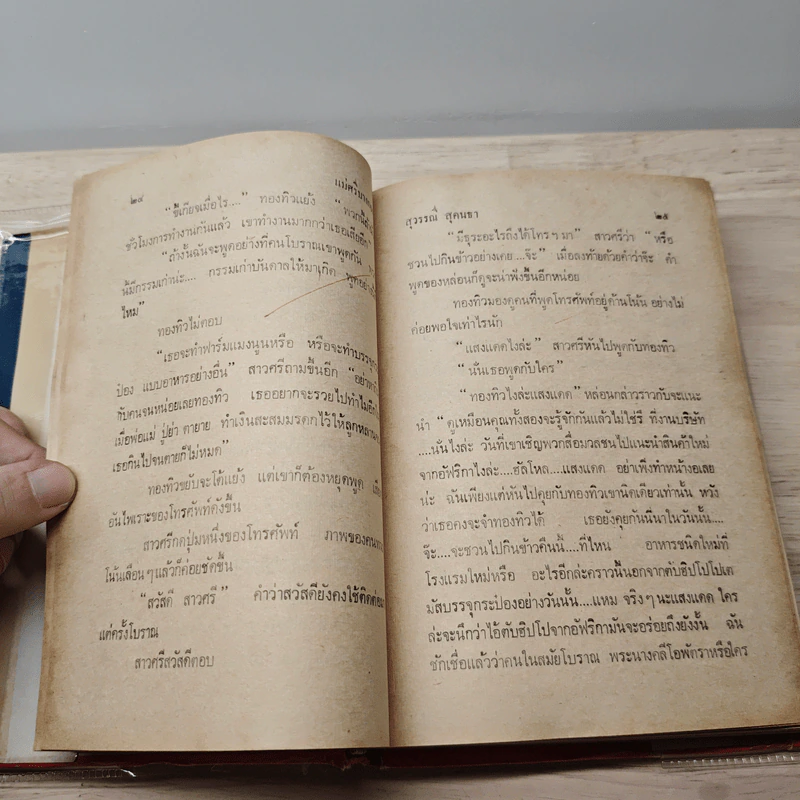 ๒๔
"ขี้เกียจเมื่อไร...." ทองทิวแย้ง
ชั่วโมงการทำงานกันแล้ว เขาทำงานมากกว่าเธอเสียอีก"
"ถ้างั้นฉันจะพูดอย่างที่คนโบราณเขาพูดกัน
นี้มีกรรมเก่าน่ะ.... กรรมเก่าบันดาลให้มาเกิด
ไหม"
ทองทิวไม่ตอบ
"เธอจะทำฟาร์มแมงนูนหรือ หรือจะทำบรรจุกระ
ป๋อง แบบอาหารอย่างอื่น" สาวศรีถามขึ้นอีก
กับคนจนหน่อยเลยทองทิว เธออยากจะรวยไปทำไม
เมื่อพ่อแม่ ปู่ย่า ตายาย ทำเงินสะสมมรดกไว้ให้ลูกหลาน
เธอกินไปจนตายก็ไม่หมด"
ทองทิวขยับจะโต้แย้ง แต่เขาก็ต้องหยุดพูด
อันไพเราะของโทรศัพท์ดังขึ้น
สาวศรีกดปุ่มหนึ่งของโทรศัพท์ ภาพของคน
โน้นเลือนๆแล้วก็ค่อยชัดขึ้น
"สวัสดี สาวศรี" คำว่าสวัสดียังคงใช้ติดต่อ
แต่ครั้งโบราณ
สาวศรีสวัสดีตอบ
สุวรรณี สุคนธา
๒๕
"มีธุระอะไรถึงได้โทรฯมา" สาวศรีว่า "หรือ
ชวนไปกินข้าวอย่างเคย....จ๊ะ" เมื่อลงท้ายด้วยคำว่าจ๊ะ คำ
พูดของหล่อนก็ดูจะน่าฟังขึ้นอีกหน่อย
ทองทิวมองดูคนที่พูดโทรศัพท์อยู่ด้านโน้น อย่างไม่
ค่อยพอใจเท่าไรนัก
"แสงแดดไงล่ะ" สาวศรีหันไปพูดกับทองทิว
"นั่นเธอพูดกับใคร"
"ทองทิวไงล่ะแสงแดด" หล่อนกล่าวราวกับจะแนะ
นำ "ดูเหมือนคุณทั้งสองจะรู้จักกันแล้วไม่ใช่รึ ที่งานบริษัท
....นั่นไงล่ะ วันที่เขาเชิญพวกสื่อมวลชนไปแนะนำสินค้าใหม่
จากอัฟริกาไงล่ะ....ฮัลโหล....แสงแดด อย่าเพิ่งทำหน้างอเลย
น่ะ ฉันเพียงแต่หันไปคุยกับทองทิวเขานิดเดียวเท่านั้น หวัง
ว่าเธอคงจะจำทองทิวได้ เธอยังคุยกันนี่นาในวันนั้น....
จ๊ะ....จะชวนไปกินข้าวคืนนี้....ที่ไหน อาหารชนิดใหม่ที่
โรงแรมใหม่หรือ อะไรอีกล่ะคราวนี้นอกจากตับฮิปโปโปเต
มัสบรรจุกระป๋องอย่างวันนั้น....แหม จริงๆนะแสงแดด ใคร
ล่ะจะนึกว่าไอ้ตับฮิปโปจากอัฟริกามันจะอร่อยถึงยังงั้น ฉัน
ชักเชื่อแล้วว่าคนในสมัยโบราณ พระนางคลีโอพัตราหรือใคร